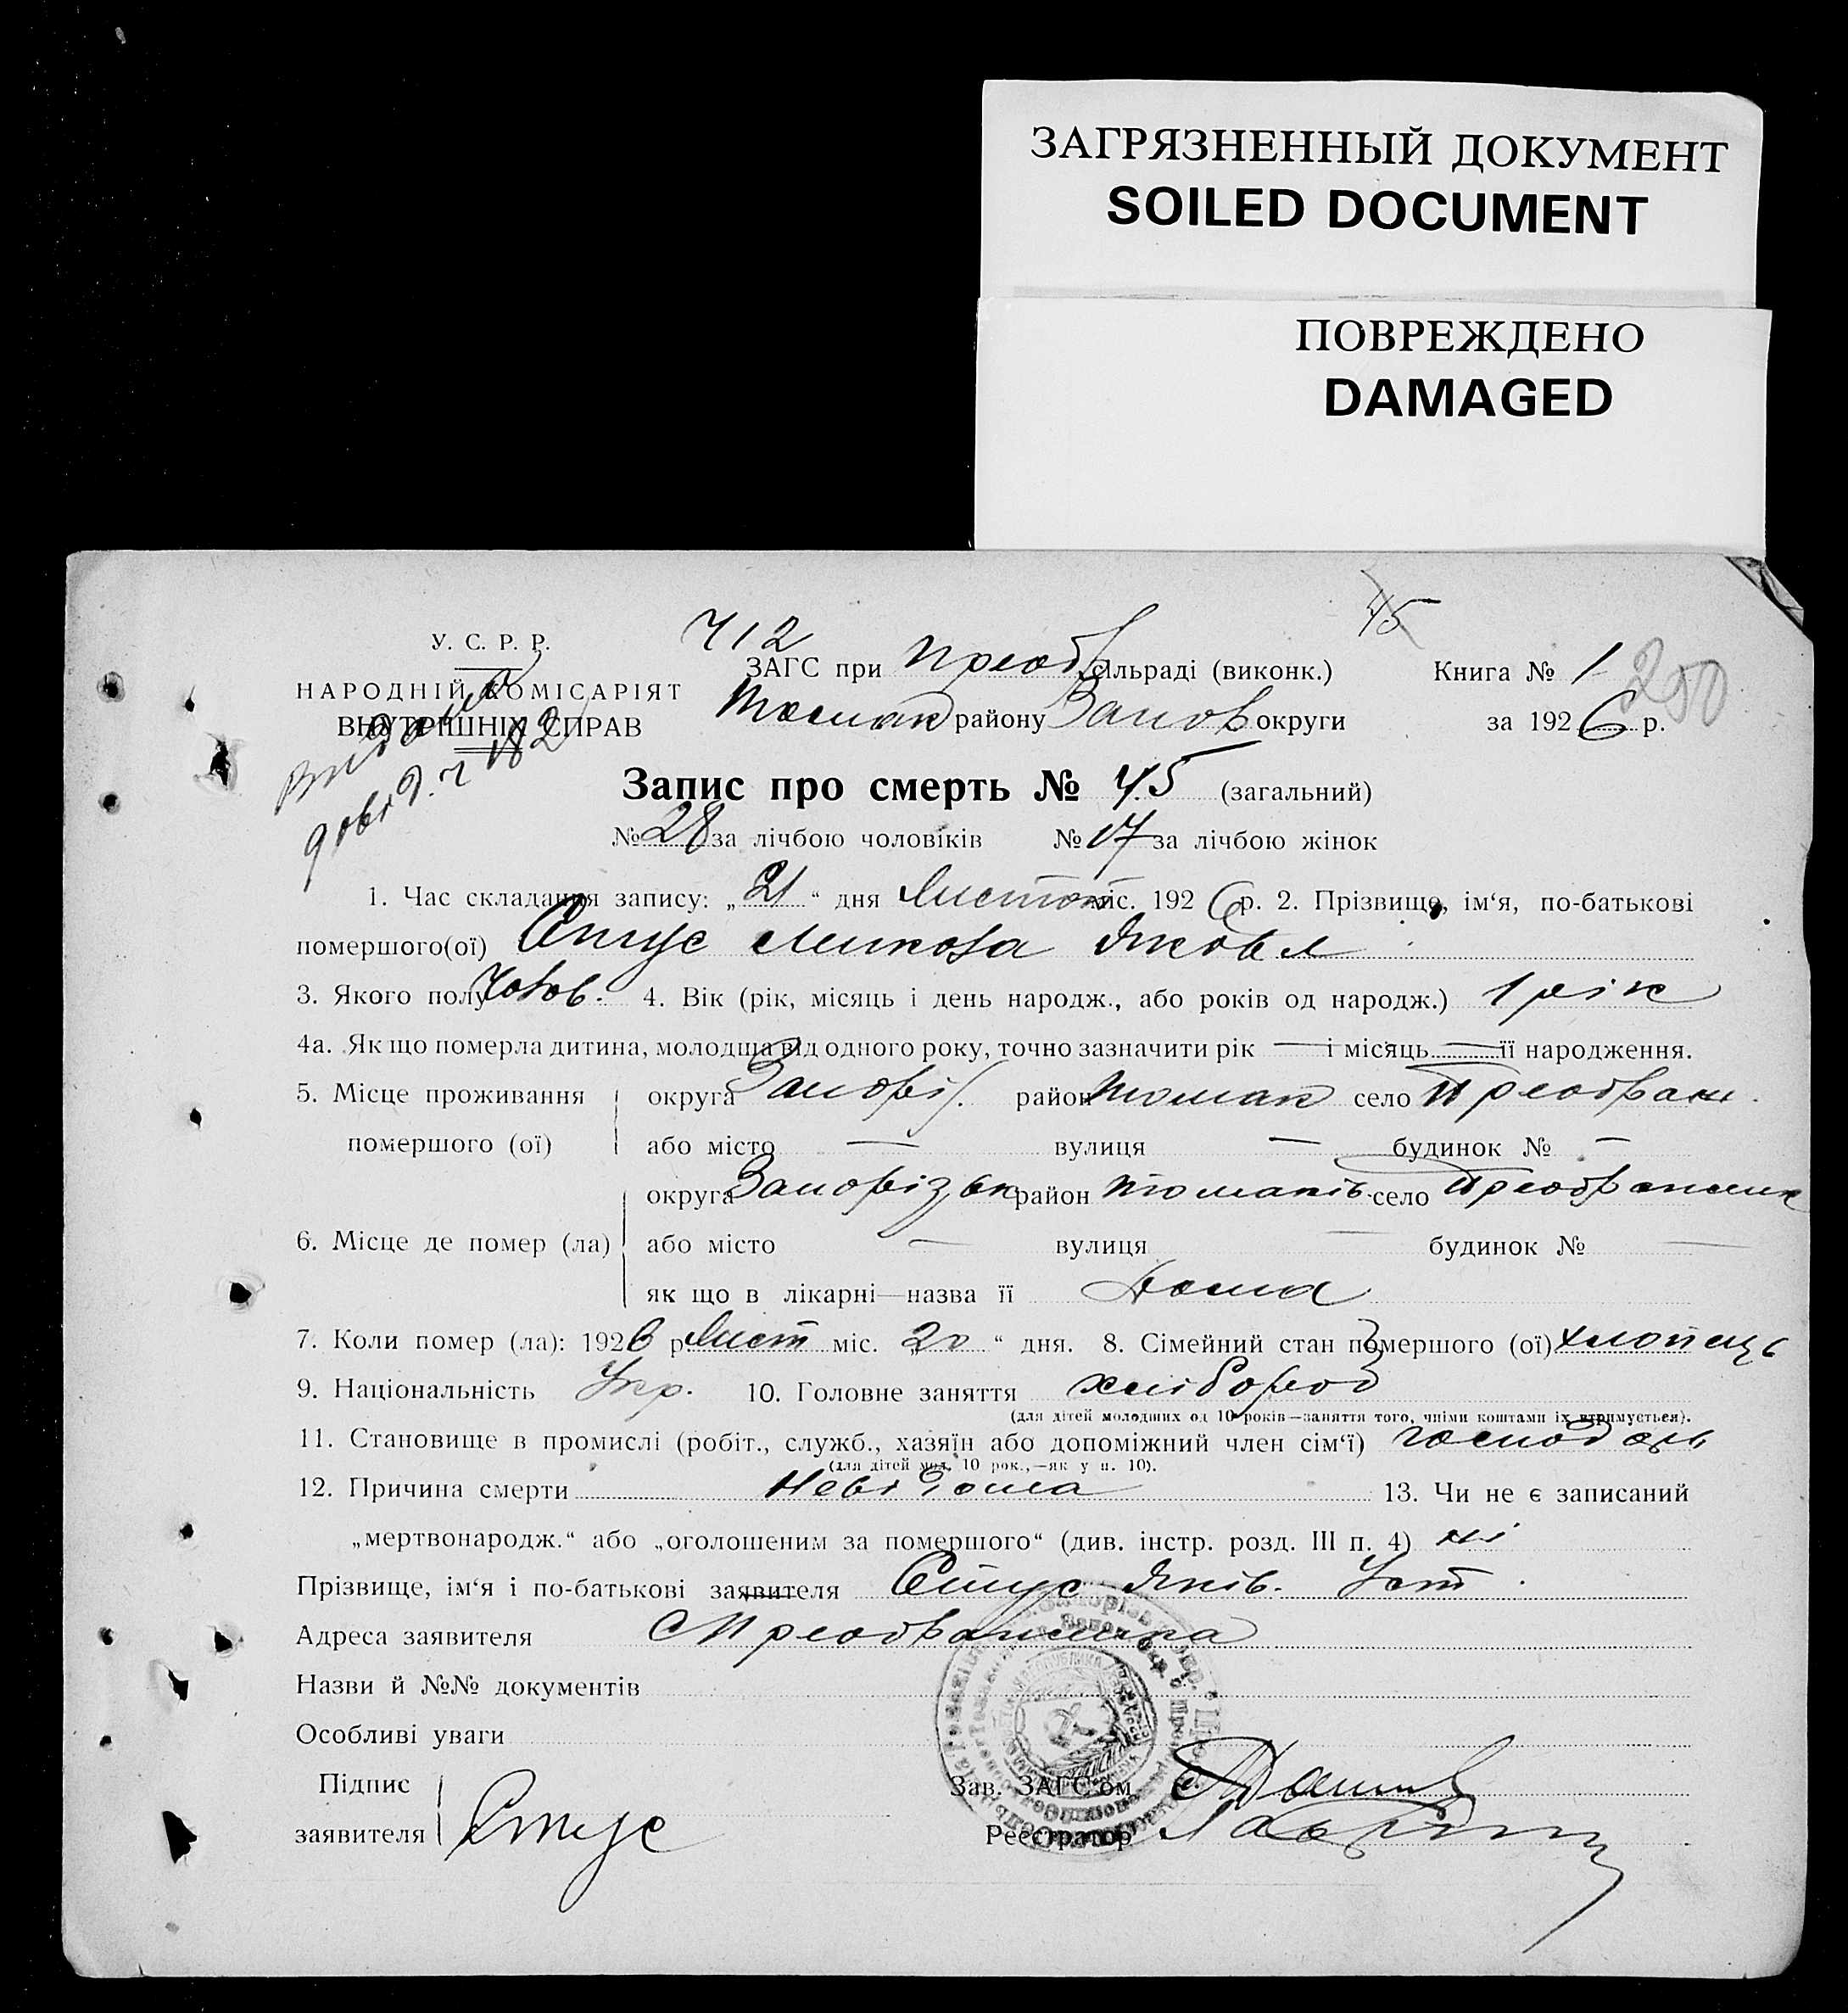 ЗАГРЯЗНЕННЫЙ ДОКУМЕНТ
SOILED DOCUMENT
ПОВРЕЖДЕНО
DAMAGED
У. С. Р. Р.
НАРОДНІЙ КОМІСАРІЯТ
ВНУТРІШНІХ СПРАВ
712
45
ЗАГС при Преобр сільраді (виконк.) Книга № 1
250
Томак району Запор округи за 1926 р.
Запис про смерть № 45 (загальний)
№ 28 за лічбою чоловіків № 17 за лічбою жінок
1. Час складання запису: „21“ дня Листоп міс. 1926 р. 2. Прізвище, ім‘я, по-батькові
помершого(ої) Стус Микола Яковл
3. Якого полу Чолов. 4. Вік (рік, місяць і день народж., або років од народж.) 1 рік
4а. Як що померла дитина, молодша від одного року, точно зазначити рік — і місяць — її народження.
5. Місце проживання помершого (ої) округа Запоріз. район Томак село Преображ.
або місто — вулиця — будинок № —
6. Місце де помер (ла) округа Запорізьк район Томаків. село Преображенка
або місто — вулиця — будинок № —
як що в лікарні—назва її Дома
7. Коли помер (ла): 1926 р Лист міс. „20“ дня. 8. Сімейний стан помершого (ої) хлопець
9. Національність Укр. 10. Головне заняття хлібороб
(для дітей молодших од 10 років—заняття того, чиїми коштами їх втримується).
11. Становище в промислі (робіт., служб., хазяїн або допоміжний член сім‘ї) господарь
(для дітей мол. 10 рок.,—як у п. 10).
12. Причина смерти Невідома 13. Чи не є записаний
„мертвонародж.“ або „оголошеним за помершого“ (див. інстр. розд. III п. 4) ні
Прізвище, ім‘я і по-батькові заявителя Стус Яків. Уст.
Адреса заявителя с Преображенка
Назви й №№ документів
Особливі уваги
Підпис заявителя Стус
Зав. ЗАГС‘ом
Реєстратор